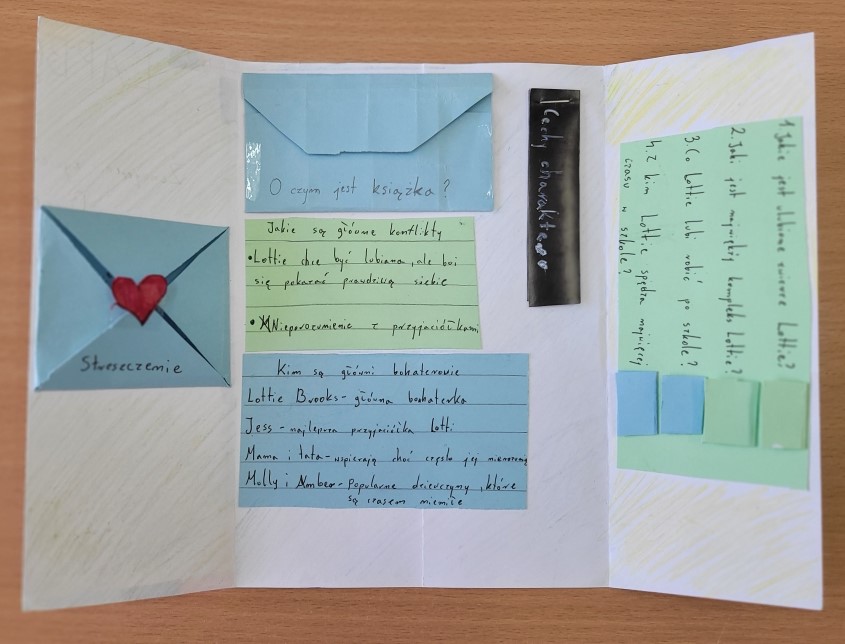 Streszczenie
O czym jest książka?
Jakie są główne konflikty
• Lottie chce być lubiana, ale boi
się pokazać prawdziwą siebie
• Nieporozumienie z przyjaciółkami
Kim są główni bohaterowie
Lottie Brooks - główna boohaterka
Jess - najlepsza przyjaciółka Lotti
Mama i tata - wspierają choć często jej
Molly i Amber - Popularne dziewczyny, które
są czasem niemiłe
Cechy charakteru
1. Jakie jest ulubione zwierze Lottie?
2. Jaki jest największy kompleks Lottie?
3. Co Lottie lubi robić po szkole?
4. Z kim Lottie spędza najwięcej
czasu w szkole?